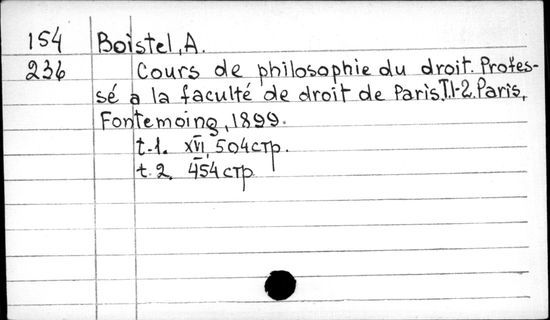 154 Boistel, A.
236 Cours de philosophie du droit. Profes-
sé a la faculté de droit de Paris. T.1-2. Paris,
Fontemoing, 1899.
t.1. XVI, 504 стр.
t.2. 454 стр